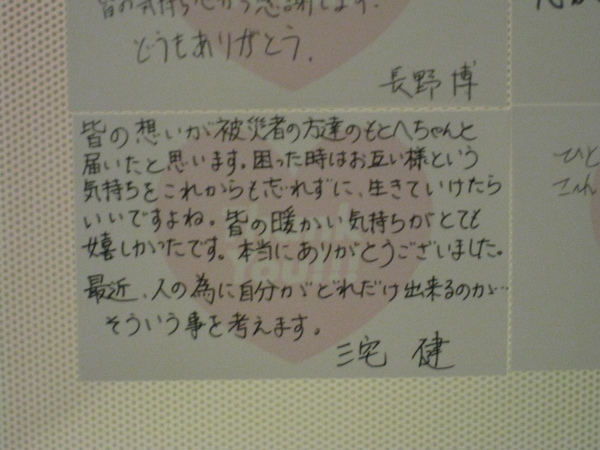 皆の気持ち心から感謝します。
どうもありがとう.
長野 博
皆の想いが被災者の方達のもとへちゃんと
届いたと思います。困った時はお互い様という
気持ちをこれからも忘れずに、生きていけたら
いいですよね。皆の暖かい気持ちがとても
嬉しかったです。本当にありがとうございました。
最近、人の為に自分がどれだけ出来るのか…
そういう事を考えます。
三宅 健
ひと